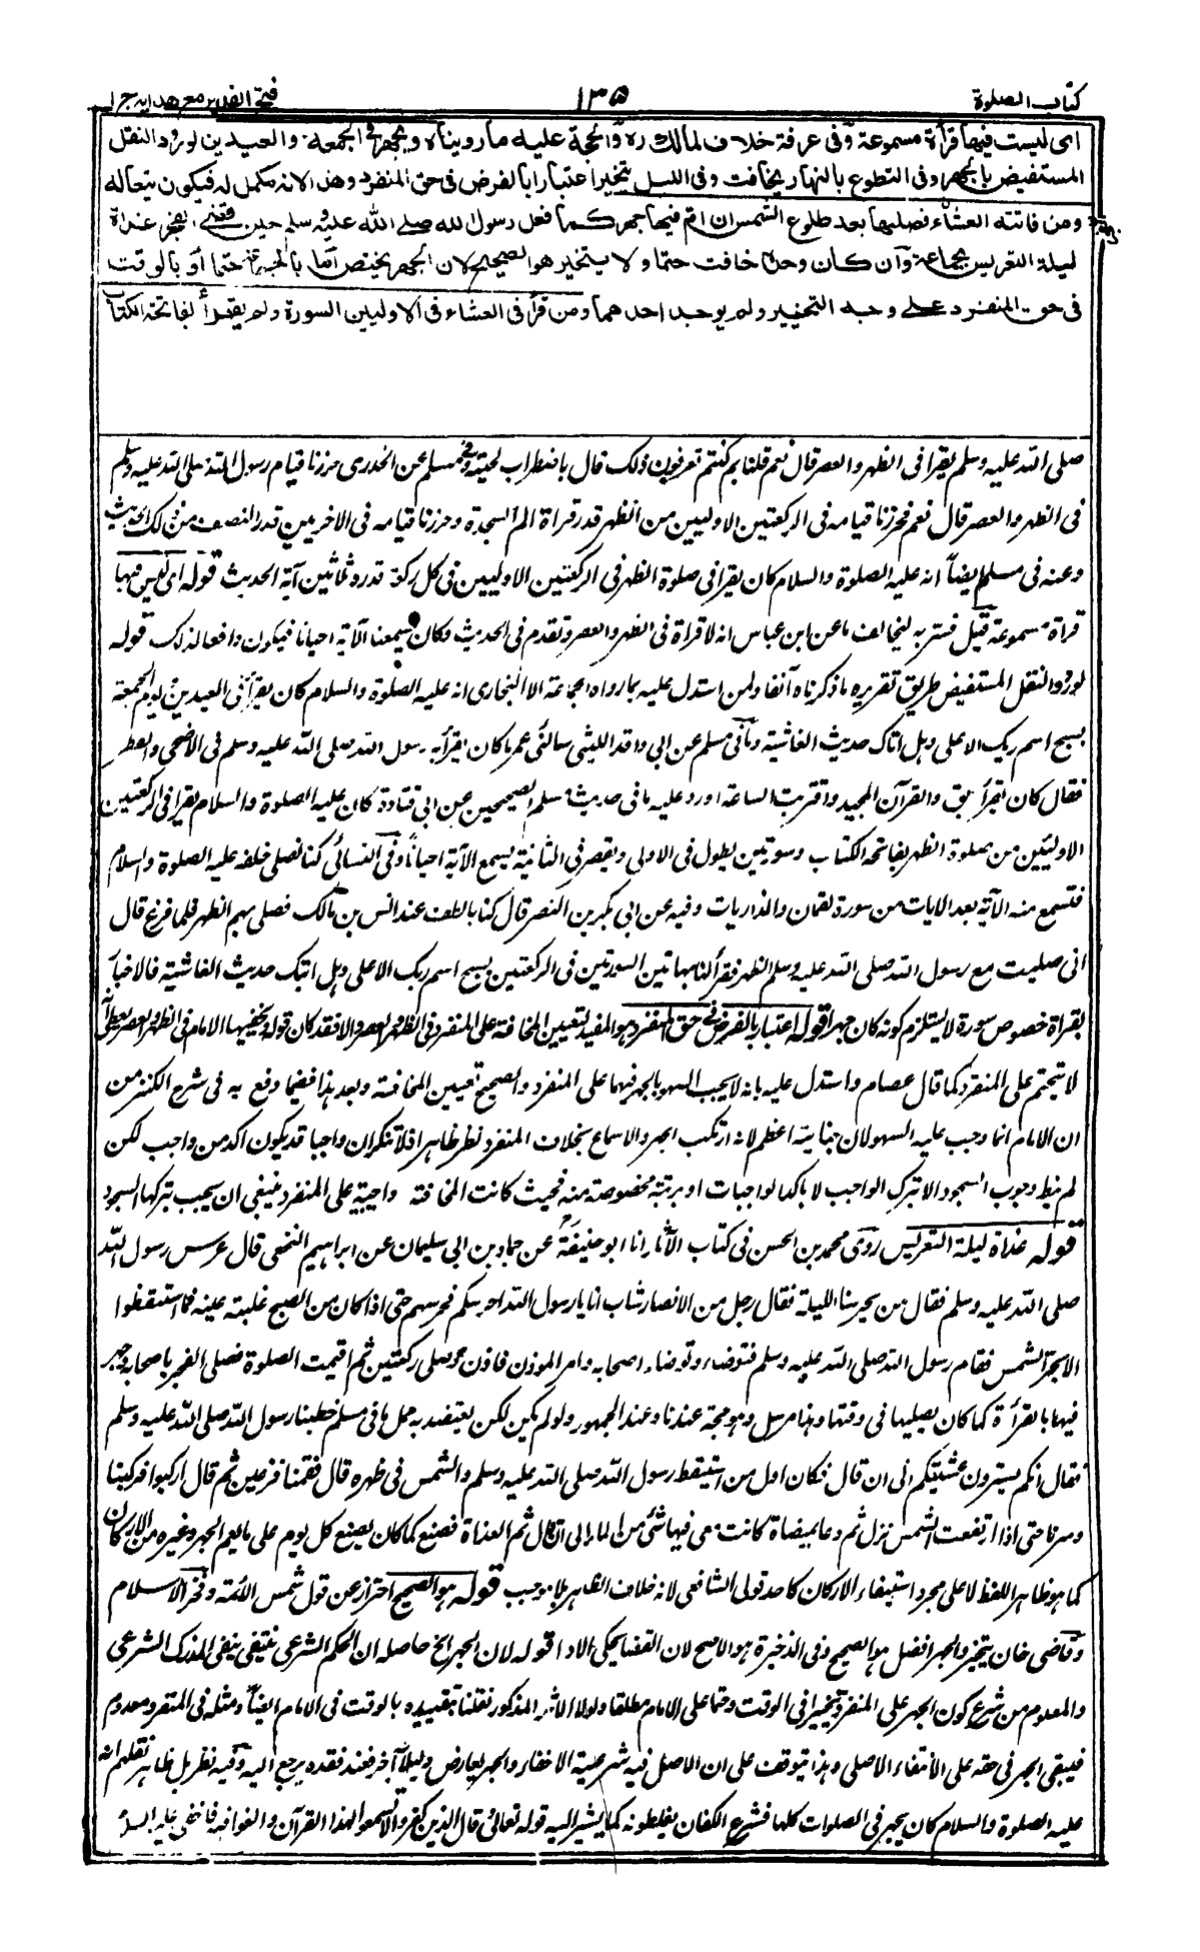 كتاب الصلوة
١٣٥
فتح القدير مع هدايه ج ١
اى ليست فيها قرأة مسموعة وفى عرفة خلاف لمالك ره والحجة عليه ما رويناه ويجهر فى الجمعة والعيدين لورود النقل
المستفيض بالجهر وفى التطوع بالنهار يخافت وفى الليل يتخير اعتبارا بالفرض فى حق المنفرد وهذا لانه مكمل له فيكون تبعا له
ومن فاتته العشاء فصليها بعد طلوع الشمس ان ام فيها جهر كما فعل رسول الله صلى الله عليه وسلم حين قضى الفجر غداة
ليلة التعريس بجماعة وان كان وحده خافت حتما ولا يتخير هو الصحيح لان الجهر يختص اما بالجماعة حتما او بالوقت
فى حق المنفرد على وجه التخيير ولم يوجد احدهما ومن قرأ فى العشاء فى الاوليين السورة ولم يقرأ لفاتحة الكتاب
صلى الله عليه وسلم يقرأ فى الظهر والعصر قال نعم قلنا بم كنتم تعرفون ذلك قال باضطراب لحيته وفى مسلم عن الخدرى حزرنا قيام رسول الله صلى الله عليه وسلم
فى الظهر والعصر قال نعم فحزرنا قيامه فى الركعتين الاوليين من الظهر قدر قراة الم السجدة وحزرنا قيامه فى الاخريين قدر النصف من ذلك الحديث
وعنه فى مسلم ايضاً انه عليه الصلوة والسلام كان يقرأ فى صلوة الظهر فى الركعتين الاوليين فى كل ركعة قدر ثلاثين آية الحديث قوله اى ليس فيها
قراة مسموعة قيل فسر به ليخالف ما عن ابن عباس انه لا قراة فى الظهر والعصر وتقدم فى الحديث وكان يسمعنا الآية احيانا فيكون دافعا لذلك قوله
لورود النقل المستفيض طريق تقريره ما ذكرناه آنفا ولمن استدل عليه بما رواه الجماعة الا البخارى انه عليه الصلوة والسلام كان يقرأ فى العيدين ويوم الجمعة
بسبح اسم ربك الاعلى وهل اتاك حديث الغاشية وما فى مسلم عن ابى واقد الليثى سالنى عمر ما كان يقرأ به رسول الله صلى الله عليه وسلم فى الاضحى والفطر
فقال كان يقرأ بق والقرآن المجيد واقتربت الساعة اورد عليه ما فى حديث مسلم الصحيحين عن ابى قتادة كان عليه الصلوة والسلام يقرأ فى الركعتين
الاوليين من صلوة الظهر بفاتحة الكتاب وسورتين يطول فى الاولى ويقصر فى الثانية يسمع الآية احياناً وفى النسائى كنا نصلى خلفه عليه الصلوة والسلام
فنسمع منه الآية بعد الايات من سورة لقمان والذاريات وفيه عن ابى بكر بن النضر قال كنا بالطف عند انس بن مالك فصلى بهم الظهر فلما فرغ قال
انى صليت مع رسول الله صلى الله عليه وسلم الظهر فقرأ لنا بهاتين السورتين فى الركعتين بسبح اسم ربك الاعلى وهل اتيك حديث الغاشية فالاخبار
بقراة خصوص سورة لا يستلزم كونه كان جهرا قوله اعتبارا بالفرض فى حق المنفرد هو المفيد لتعيين المخافتة على المنفرد فى الظهر والعصر والا فقد كان قوله ويخفيها الامام فى الظهر والعصر يعطى انه
لا يتحتم على المنفرد كما قال عصام واستدل عليه بانه لا يجب السهو بالجهر فيها على المنفرد والصحيح تعيين المخافتة وبعد هذا ففيما وقع به فى شرح الكنز من
ان الامام انما وجب عليه السهو لان جنايته اعظم لانه ارتكب الجهر والاسماع بخلاف المنفرد نظر ظاهر اذ لا ننكر ان واجبا قد يكون آكد من واجب لكن
لم ينط وجوب السجود الا بترك الواجب لا بآكد الواجبات او برتبة مخصوصة منه فحيث كانت المخافتة واجبة على المنفرد ينبغى ان يجب بتركها السجود
قوله غداة ليلة التعريس روى محمد بن الحسن فى كتاب الآثار انا ابو حنيفة عن حماد بن ابى سليمان عن ابراهيم النخعى قال عرس رسول الله
صلى الله عليه وسلم فقال من يحرسنا الليلة فقال رجل من الانصار شاب انا يا رسول الله احرسكم فحرسهم حتى اذا كان من الصبح غلبته عينه فما استيقظوا
الا بحر الشمس فقام رسول الله صلى الله عليه وسلم فتوضاء وتوضاء اصحابه وامر الموذن فاذن وصلى ركعتين ثم اقيمت الصلوة فصلى الفجر باصحابه وجهر
فيها بالقرأة كما كان يصليها فى وقتها وهذا مرسل وهو حجة عندنا وعند الجمهور ولو لم يكن لكن يعتضد به حمل ما فى مسلم خطبنا رسول الله صلى الله عليه وسلم
فقال انكم تسيرون عشيتكم الى ان قال فكان اول من استيقظ رسول الله صلى الله عليه وسلم والشمس فى ظهره قال فقمنا فزعين ثم قال اركبوا فركبنا
وسرنا حتى اذا ارتفعت الشمس نزل ثم دعا بميضاة كانت معى فيها شئ من الماء الى ان قال ثم صلى الغداة فصنع كما كان يصنع كل يوم على ما يعم الجهر وغيره من الاركان
كما هو ظاهر اللفظ لا على مجرد استيفاء الاركان كاحد قولى الشافعى لانه خلاف الظاهر بلا موجب قوله هو الصحيح احتراز عن قول شمس الائمة وفخر الاسلام
وقاضى خان يتخير والجهر افضل هو الصحيح وفى الذخيرة هو الاصح لان القضاء يحكى الاداء قوله لان الجهر الخ حاصله ان الحكم الشرعى ينتفى بنفى المدرك الشرعى
والمعلوم من شرع كون الجهر على المنفرد تخييرا فى الوقت وحتما على الامام مطلقا ولولا الاثر المذكور لقلنا بتقييده بالوقت فى الامام ايضاً ومثله فى المنفرد معدوم
فيبقى الجهر فى حقه على الانتفاء الاصلى وهذا يتوقف على ان الاصل فيه شرعية الاخفاء والجهر يعارض دليلاً آخر فعند فقده يرجع اليه وفيه نظر بل ظاهر نقلهم انه
عليه الصلوة والسلام كان يجهر فى الصلوات كلها فشرع الكفار يغلطونه كما يشير اليه قوله تعالى وقال الذين كفروا لا تسمعوا لهذا القرآن والغوا فيه فاخفى عليه السلا